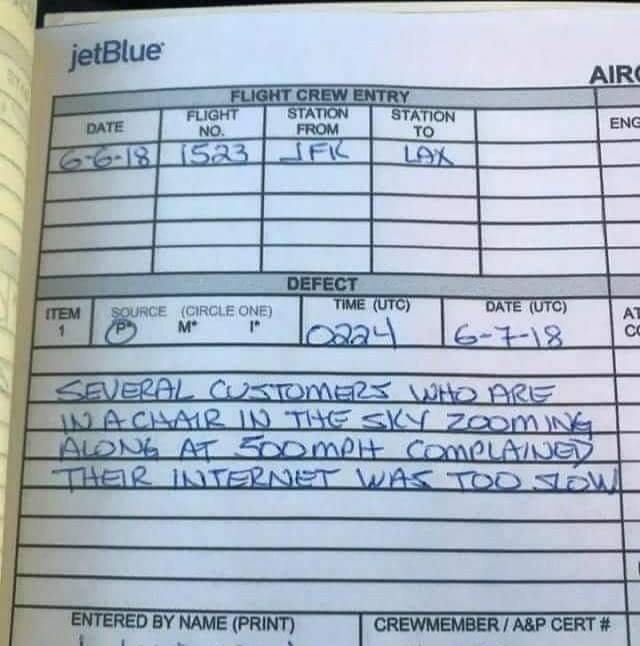 jetBlue
AIRC
FLIGHT CREW ENTRY
DATE FLIGHT NO. STATION FROM STATION TO ENG
6-6-18 1523 JFK LAX
DEFECT
ITEM 1 SOURCE (CIRCLE ONE) P* M* I* TIME (UTC) 0224 DATE (UTC) 6-7-18 AT CO
SEVERAL CUSTOMERS WHO ARE
IN A CHAIR IN THE SKY ZOOMING
ALONG AT 500MPH COMPLAINED
THEIR INTERNET WAS TOO SLOW
ENTERED BY NAME (PRINT) CREWMEMBER / A&P CERT #